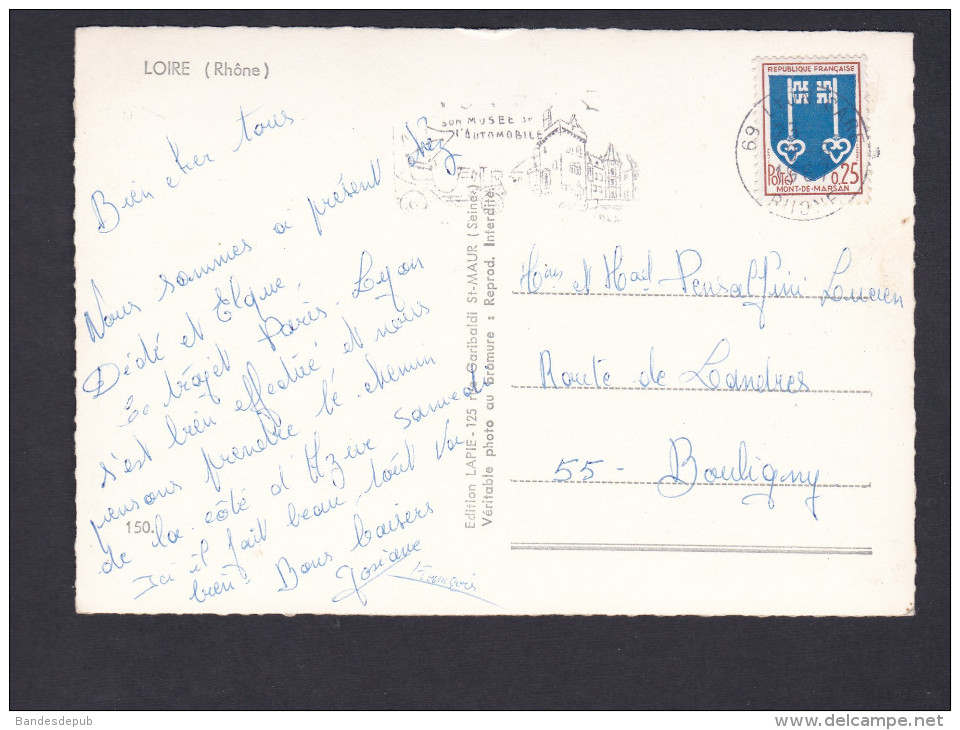 LOIRE (Rhône)
Bien cher tous
Nous sommes à présent chez
Dédé et
Le trajet Paris-Lyon
s'est bien effectué et nous
pensons prendre le chemin
de la côté d'Azur samedi
Ici il fait beau, tout va
bien. Bons baisers
Josiane
François
150.
Edition LAPIE - 125 rue Garibaldi St-MAUR (Seine)
Véritable photo au Bromure : Reprod. Interdite
SON MUSEE DE
L'AUTOMOBILE
69
RHONE
REPUBLIQUE FRANÇAISE
POSTES 0,25
MONT-DE-MARSAN
Lucien
Route de Landres
55 - Bouligny
Bandesdepub
delcampe.net